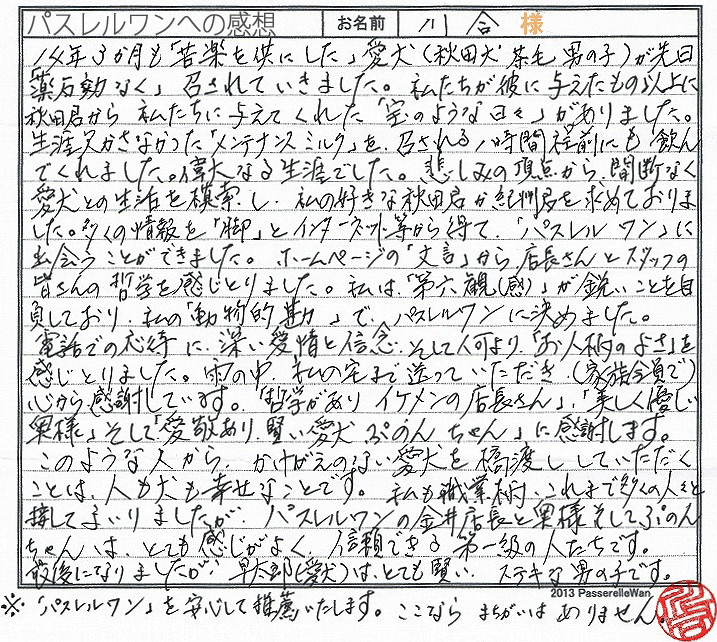 パスレルワンへの感想 お名前 川合 様
14年3か月も「苦楽を供にした」愛犬(秋田犬 茶毛 男の子)が先日
薬石効なく」召されていきました。私たちが彼に与えたもの以上に
秋田君から 私たちに与えてくれた「宝のような日々」がありました。
生涯欠かさなかった「メンテナンスミルク」を、召される1時間程前にも飲ん
でくれました。偉大なる生涯でした。悲しみの頂点から、間断なく
愛犬との生活を模索し、私の好きな秋田君か紀州君を求めておりま
した。多くの情報を「脚」とインターネット等から得て、「パスレル ワン」に
出会うことができました。ホームページの「文言」から店長さんとスタッフの
皆さんの哲学を感じとりました。私は、「第六観(感)」が鋭いことを自
負しており、私の「動物的勘」で、パスレルワンに決めました。
電話での応待に、深い愛情と信念、そして何より、「お人柄のよさ」を
感じとりました。雨の中、私の宅まで送っていただき、(家族全員で)
心から感謝しています。「哲学がありイケメンの店長さん」、「美しく優しい
奥様」そして「愛敬あり、賢い愛犬 ぷのんちゃん」に感謝します。
このような人から、かけがえのない愛犬を橋渡ししていただく
ことは、人も犬も幸せなことです。私も職業柄、これまで多くの人々と
接してまいりましたが、パスレルワンの金井店長と奥様そしてぷのん
ちゃんは、とても感じがよく、信頼できる第一級の人たちです。
最後になりましたが、早太郎(愛犬)は、とても賢い、ステキな男の子です。
2013 PasserelleWan.
※「パスレルワン」を安心して推薦いたします。ここなら まちがいは ありません。